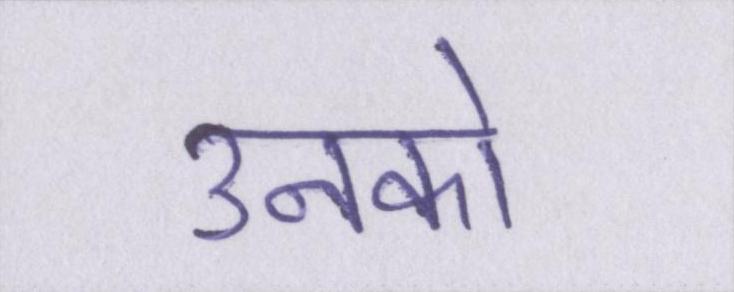 उनको